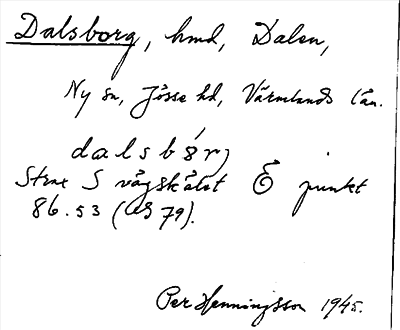 Dalsborg, hmd, Dalen,
Ny sn, Jösse hd, Värmlands län.
dalsbórj
Strax S vägskälet Ö punkt
86.53 (GS 79).
Per Henningsson 1945.